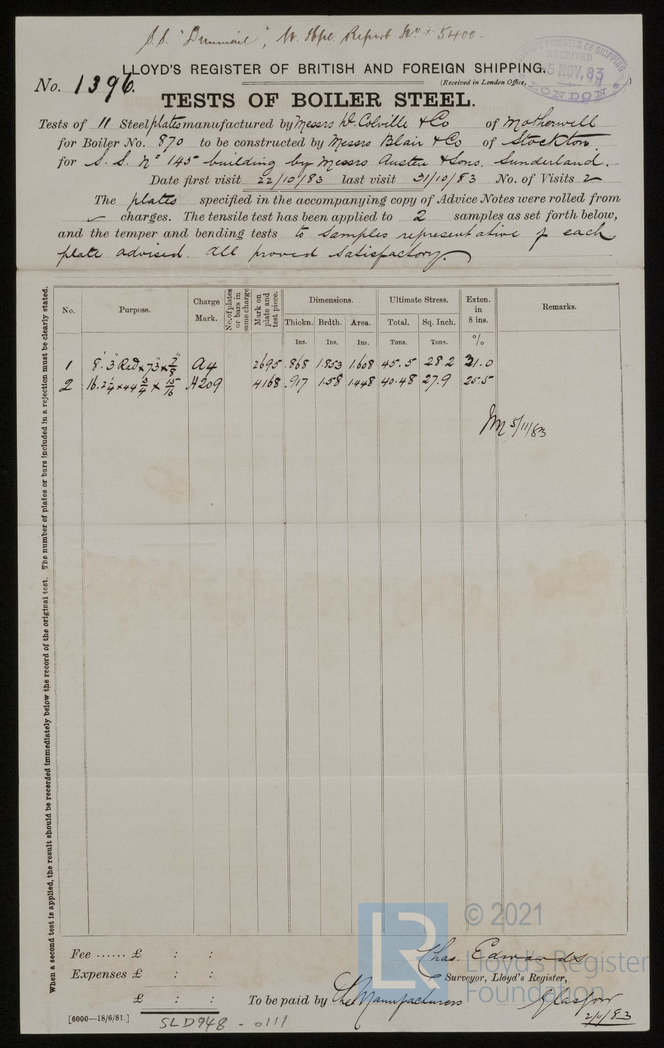 S.S. "Dunmail", W. Hpl Report No. 5400
LLOYD'S REGISTER OF BRITISH AND FOREIGN SHIPPING.
No. 1396. (Received in London Office,
LLOYD'S REGISTER OF SHIPPING
RECEIVED
5 NOV. 83
LONDON
TESTS OF BOILER STEEL.
Tests of 11 Steel plates manufactured by Messrs D. Colville & Co of Motherwell
for Boiler No. 870 to be constructed by Messrs Blair & Co of Stockton
for S.S. No 145 building by Messrs Austin & Sons. Sunderland.
Date first visit 22/10/83 last visit 31/10/83 No. of Visits 2
The plates specified in the accompanying copy of Advice Notes were rolled from
✓ charges. The tensile test has been applied to 2 samples as set forth below,
and the temper and bending tests to samples representative of each
plate advised. All proved satisfactory.
When a second test is applied, the result should be recorded immediately below the record of the original test. The number of plates or bars included in a rejection must be clearly stated.
No. Purpose. Charge Mark. No. of plates or bars in same charge Mark on plate and test piece. Dimensions. Ultimate Stress. Exten. in 8 ins. Remarks.
Thickn. Brdth. Area. Total. Sq. Inch.
Ins. Ins. Ins. Tons. Tons. %
1 8' 3" Rad x 7'3 x 7/8 A4 2695 .868 1.853 1.608 45.5 28.2 31.0
2 16.2 1/4 x 44 3/4 x 15/16 H209 4168 .917 1.58 1.448 40.48 27.9 25.5
5/11/83
Fee ...... £ : :
Expenses £ : :
£ : :
Chas. Edwards
Surveyor, Lloyd's Register,
To be paid by The Manufacturers Glasgow
2/11/83
[6000—18/6/81.]
SLD948 - 0111
LR
© 2021
Lloyd's Register
Foundation